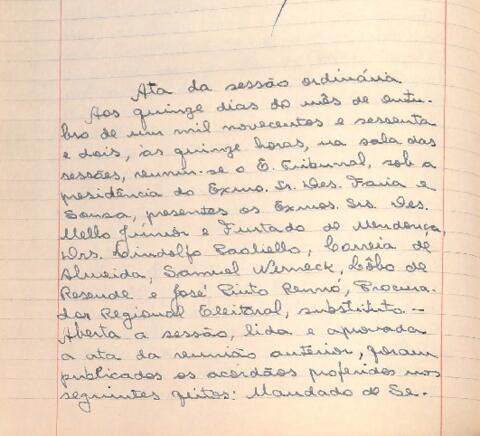 Ata da sessão ordinária
Aos quinze dias do mês de outu-
bro de um mil novecentos e sessenta
e dois, às quinze horas, na sala das
sessões, reuniu-se o E. Tribunal, sob a
presidência do Exmo. Sr. Des. Faria e
Sousa, presentes os Exmos. Srs. Des.
Mello Júnior e Furtado de Mendonça,
Drs. Lindolfo Paoliello, Correia de
Almeida, Samuel Werneck, Lôbo de
Resende e José Pinto Renno, Procura-
dor Regional Eleitoral, substituto. -
Aberta a sessão, lida e aprovada
a ata da reunião anterior, foram
publicados os acórdãos proferidos nos
seguintes feitos: Mandado de Se-